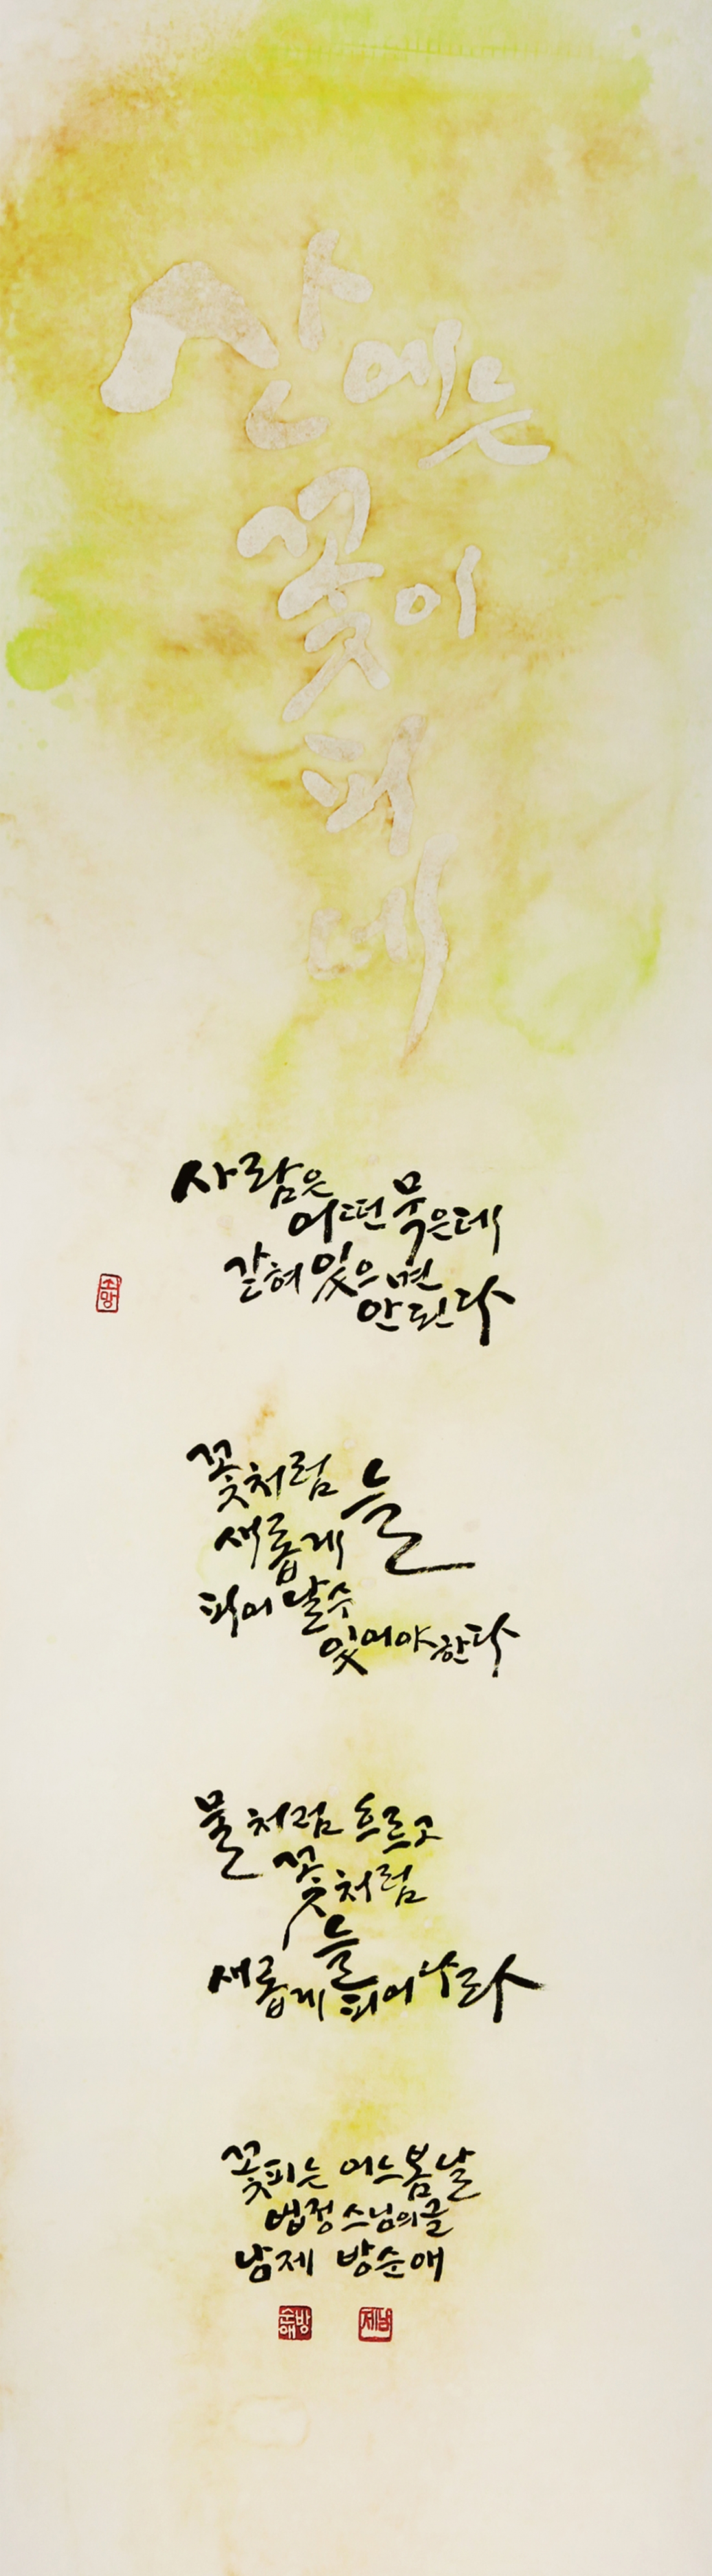 산에는
꽃이
피
네
사람은
어떤 묵은데
갇혀 있으면
안된다
꽃처럼 늘
새롭게
피어날 수
있어야한다
물처럼 흐르고
꽃처럼
늘
새롭게 피어나라
꽃피는 어느봄날
법정스님의글
남제 방순애
소망
방순애
남제